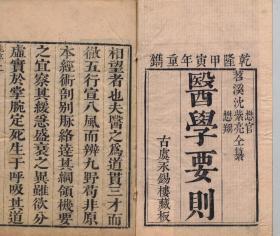 乾隆甲寅年重鐫
苕溪沈懋官紫亮仝纂
醫學要則
古虞永錫樓藏板
相望者也夫醫之為道貫三才而
徹五行宣八風而辨九野苟非原
本經術剖別脉絡達其綱領機要
之宜察其緩急盛衰之異雖欲分
虛實於掌腕定死生于呼吸其道